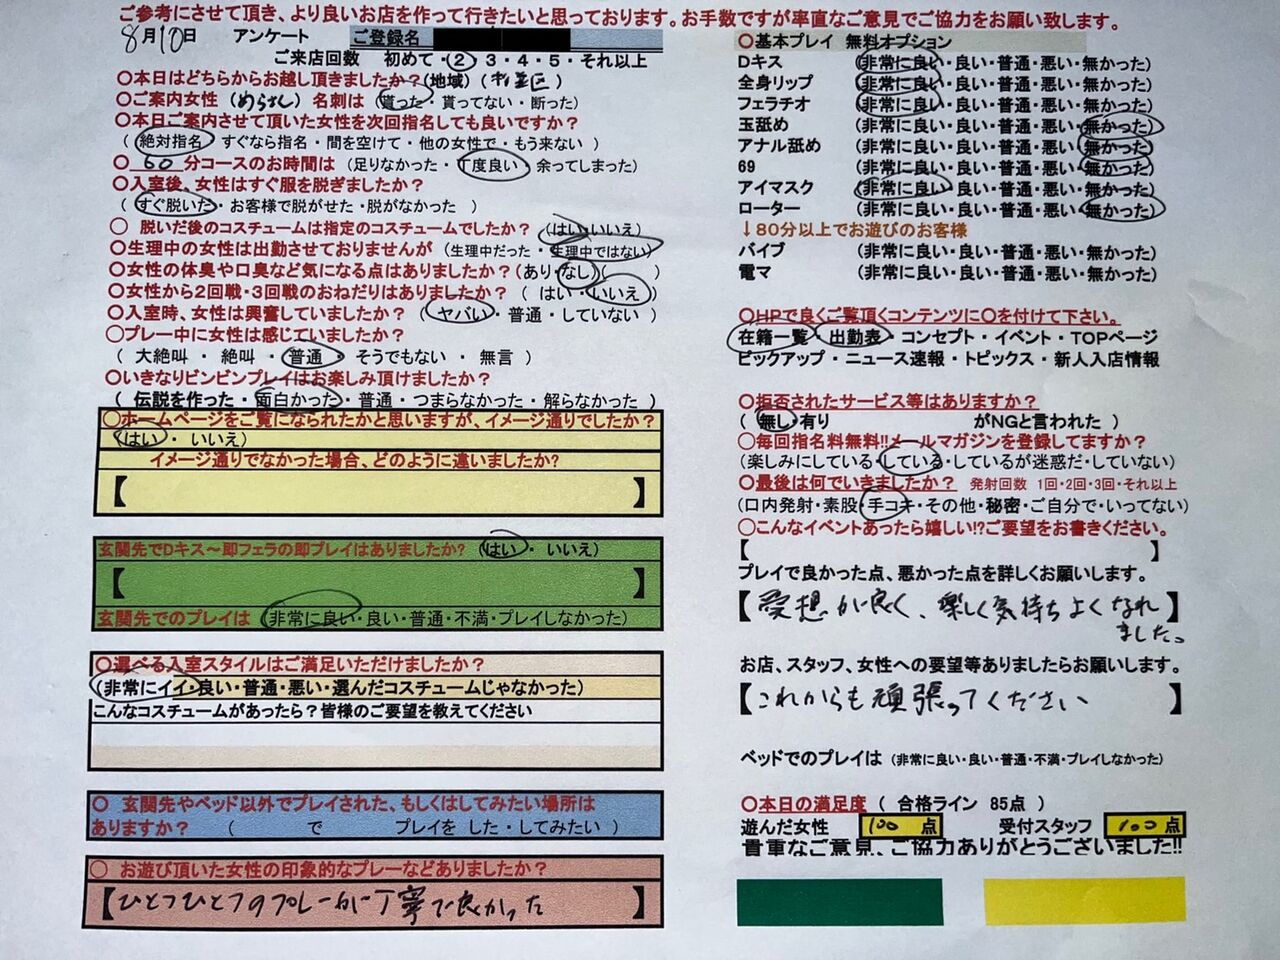 ご参考にさせて頂き、より良いお店を作って行きたいと思っております。お手数ですが率直なご意見でご協力をお願い致します。
8月10日 アンケート ご登録名
ご来店回数 初めて・2・3・4・5・それ以上
〇本日はどちらからお越し頂きましたか?(地域) ( 区)
〇ご案内女性 ( ) 名刺は (貰った・貰ってない・断った)
〇本日ご案内させて頂いた女性を次回指名しても良いですか?
( 絶対指名・すぐなら指名・間を空けて・他の女性で・もう来ない )
〇 60 分コースのお時間は (足りなかった・丁度良い・余ってしまった)
〇入室後、女性はすぐ服を脱ぎましたか?
( すぐ脱いた・お客様で脱がせた・脱がなかった )
〇 脱いだ後のコスチュームは指定のコスチュームでしたか? (はい・いいえ)
〇生理中の女性は出勤させておりませんが (生理中だった・生理中ではない)
〇女性の体臭や口臭など気になる点はありましたか?(あり・なし)( )
〇女性から2回戦・3回戦のおねだりはありましたか? ( はい・いいえ )
〇入室時、女性は興奮していましたか? ( ヤバい・普通・していない )
〇プレー中に女性は感じていましたか?
( 大絶叫・絶叫・普通・そうでもない・無言 )
〇いきなりビンビンプレイはお楽しみ頂けましたか?
( 伝説を作った・面白かった・普通・つまらなかった・解らなかった )
〇ホームページをご覧になられたかと思いますが、イメージ通りでしたか?
(はい・いいえ)
イメージ通りでなかった場合、どのように違いましたか?
【 】
玄関先でDキス～即フェラの即プレイはありましたか? (はい・いいえ)
【 】
玄関先でのプレイは (非常に良い・良い・普通・不満・プレイしなかった)
〇選べる入室スタイルはご満足いただけましたか?
(非常にイイ・良い・普通・悪い・選んだコスチュームじゃなかった)
こんなコスチュームがあったら?皆様のご要望を教えてください
〇 玄関先やベッド以外でプレイされた、もしくはしてみたい場所は
ありますか? ( で プレイを した・してみたい )
〇 お遊び頂いた女性の印象的なプレーなどありましたか?
【ひとつひとつのプレーが丁寧で良かった 】
〇基本プレイ 無料オプション
Dキス (非常に良い・良い・普通・悪い・無かった)
全身リップ (非常に良い・良い・普通・悪い・無かった)
フェラチオ (非常に良い・良い・普通・悪い・無かった)
玉舐め (非常に良い・良い・普通・悪い・無かった)
アナル舐め (非常に良い・良い・普通・悪い・無かった)
69 (非常に良い・良い・普通・悪い・無かった)
アイマスク (非常に良い・良い・普通・悪い・無かった)
ローター (非常に良い・良い・普通・悪い・無かった)
↓80分以上でお遊びのお客様
バイブ (非常に良い・良い・普通・悪い・無かった)
電マ (非常に良い・良い・普通・悪い・無かった)
〇HPで良くご覧頂くコンテンツに〇を付けて下さい。
在籍一覧・出勤表・コンセプト・イベント・TOPページ
ピックアップ・ニュース速報・トピックス・新人入店情報
〇拒否されたサービス等はありますか?
( 無し・有り がNGと言われた )
〇毎回指名料無料!!メールマガジンを登録してますか?
(楽しみにしている・している・しているが迷惑だ・していない)
〇最後は何でいきましたか? 発射回数 1回・2回・3回・それ以上
(口内発射・素股・手コキ・その他・秘密・ご自分で・いってない)
〇こんなイベントあったら嬉しい!?ご要望をお書きください。
【 】
プレイで良かった点、悪かった点を詳しくお願いします。
【愛想が良く、楽しく気持ちよくなれ】
ました。
お店、スタッフ、女性への要望等ありましたらお願いします。
【これからも頑張ってください 】
ベッドでのプレイは (非常に良い・良い・普通・不満・プレイしなかった)
〇本日の満足度 ( 合格ライン 85点 )
遊んだ女性 100 点 受付スタッフ 100 点
貴重なご意見、ご協力ありがとうございました!!